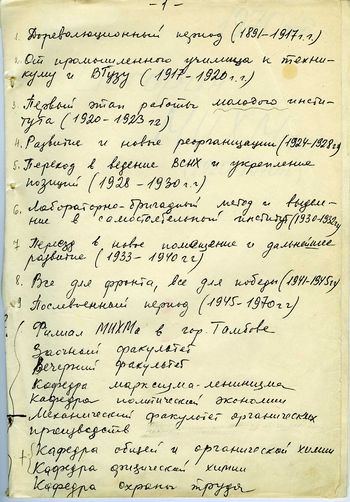 - 1 -
1. Дореволюционный период (1891-1917г.г)
2. От промышленного училища к техни-
куму и ВТУЗу (1917-1920г.г.)
3. Первый этап работы молодого инсти-
тута (1920-1923 гг)
4. Развитие и новые реорганизации (1924-1928гг)
5. Переход в ведение ВСНХ и укрепление
позиций (1928-1930г.г)
6. Лабораторно-бригадный метод и выделе-
ние в самостоятельный институт (1930-1932гг)
7 Переезд в новое помещение и дальнейшее
развитие (1933-1940гг)
8. Все для фронта, все для победы (1941-1945гг)
9 Послевоенный период (1945-1970гг)
Филиал МИХМа в гор. Тамбове
Заочный факультет
Вечерний факультет
Кафедра марксизма-ленинизма
Кафедра политической экономии
Механический факультет органических
производств
Кафедра общей и органической химии
Кафедра физической химии
Кафедра охраны труда